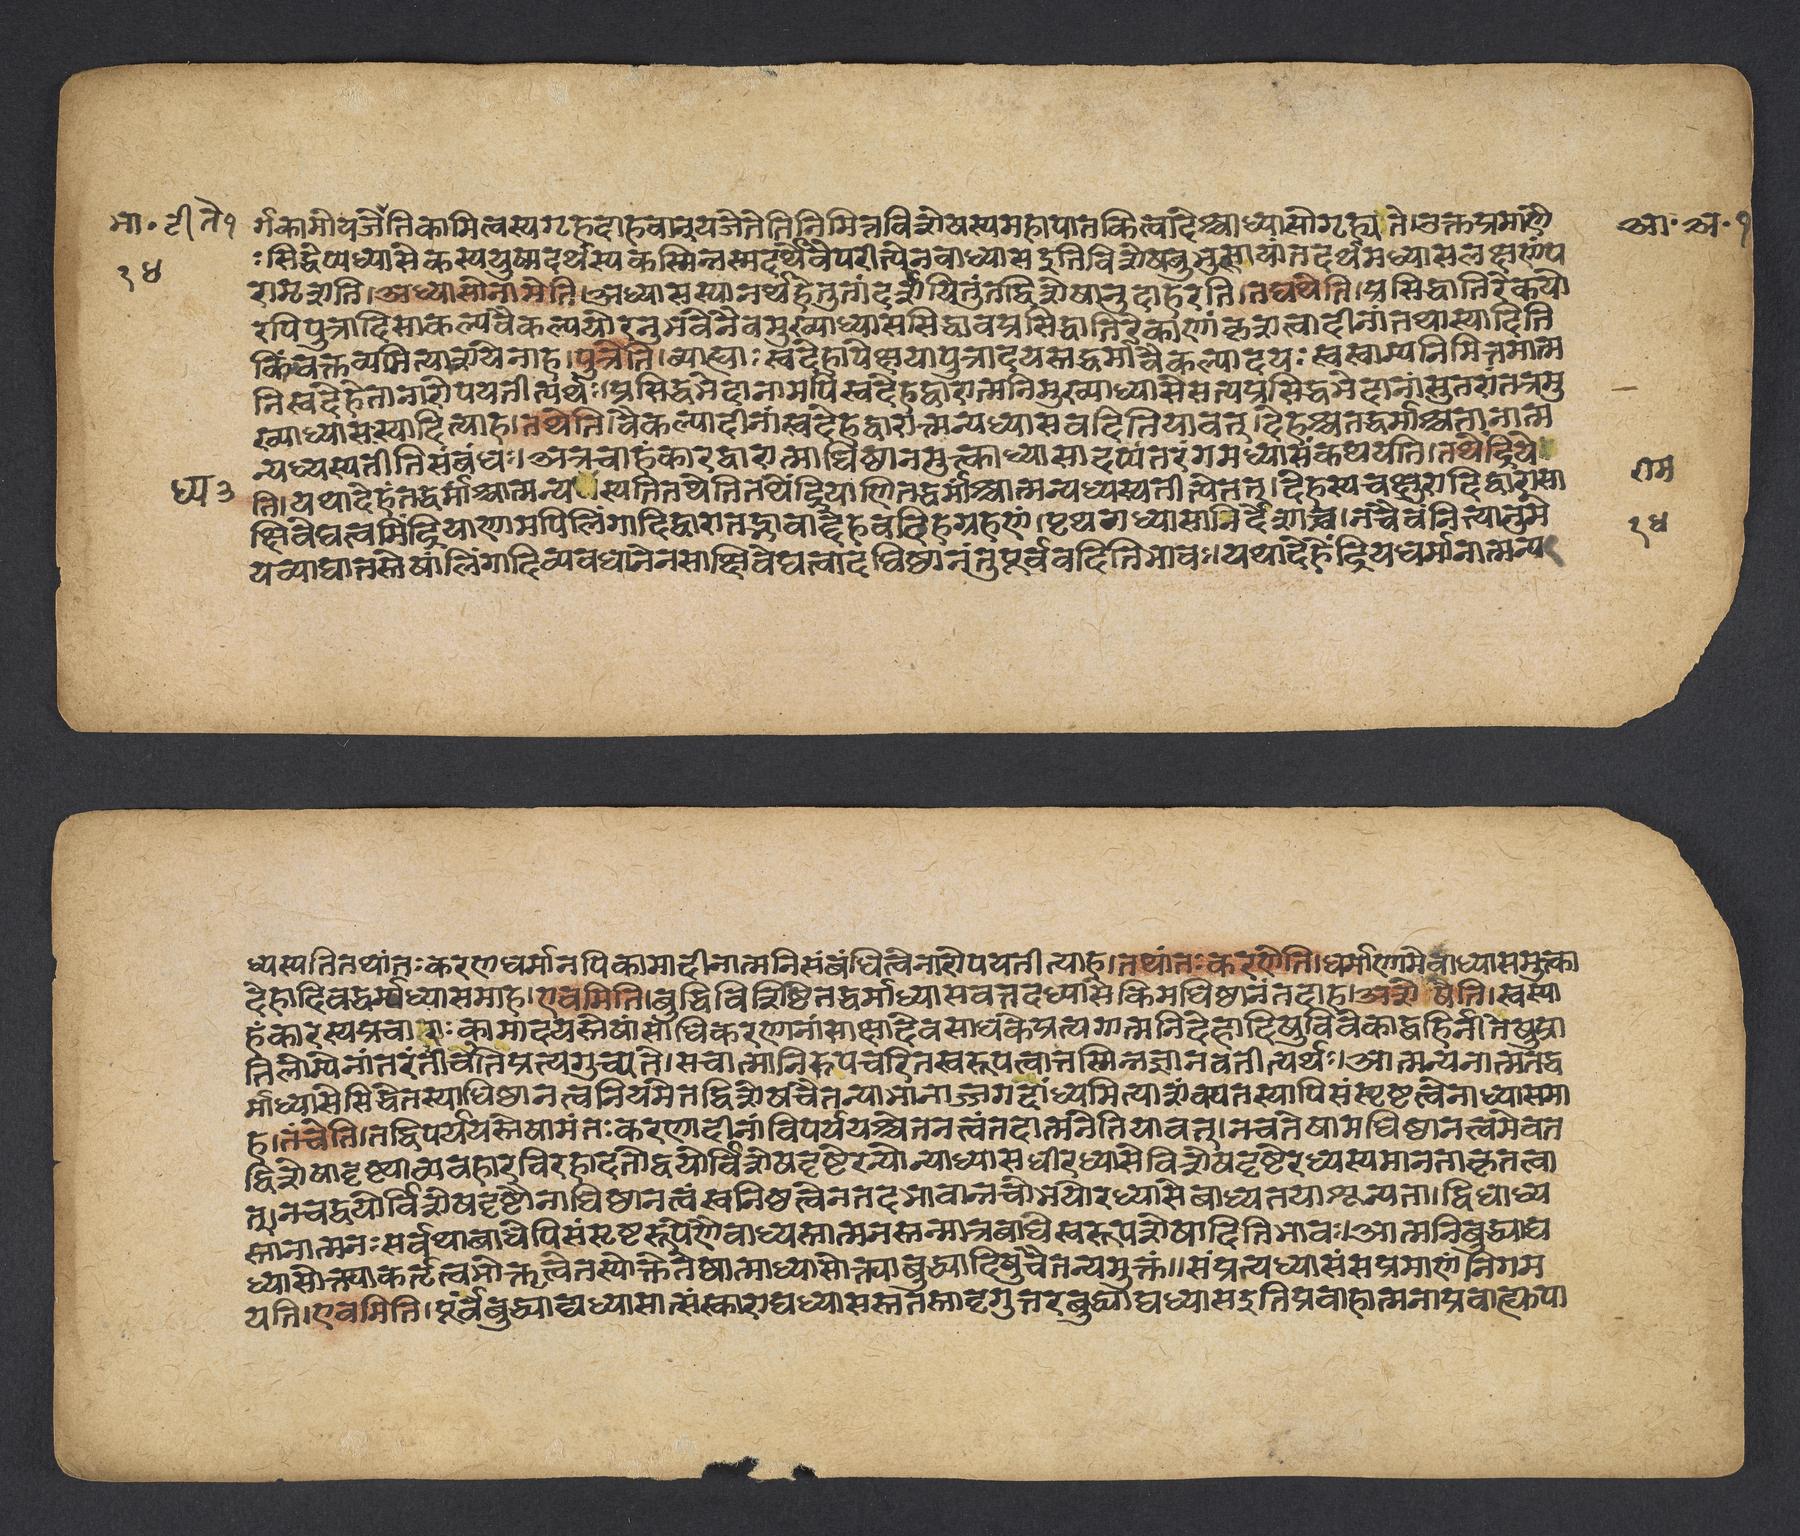 भा॰ टी ते१
१४
र्गकामोयजेतेतिकामित्वस्यगृहदाहवान्यजेतेतिनिमित्तविशेषस्यमहापातकित्वादेश्चाध्यासोगृह्यते।उक्तप्रमाणैः
आ॰ अ॰ १
ःसिद्धेप्यध्यासेकस्ययुष्मदर्थस्यकस्मिन्नस्मदर्थेवैपरीत्येनवाध्यासइतिविशेषबुभुत्सायांतदर्थमध्यासलक्षणंप
रामृशति।अध्यासोनामेति।अध्यासस्यानर्थहेतुतांदर्शयितुंतद्विशेषानुदाहरति।तद्यथेति।प्रसिद्धातिरेकयो
रपिपुत्रादिसाकल्यवैकल्ययोरनुभवेनैवमुख्याध्याससिद्धावप्रसिद्धातिरेकाणांकृशत्वादीनांतथास्यादिति
किंवक्तव्यमित्याशयेनाह।पुत्रेति।व्याख्या:स्वदेहापेक्षयापुत्रादयस्तद्धर्मावैकल्यादय:स्वस्वाम्यनिमित्तमात्म
निस्वदेहेतानारोपयतीत्यर्थ:।प्रसिद्धभेदानामपिस्वदेहद्वारात्मनिमुख्याध्यासेसत्यप्रसिद्धभेदानांसुतरांतत्रमु
ख्याध्यासस्यादित्याह।तथेति।वैकल्यादीनांस्वदेहद्वारात्मन्यध्यासवदितियावत्।देहश्चतद्धर्माश्चतानात्म
न्यध्यस्यतीतिसंबंध:।अत्रचाहंकारद्वारात्माधिष्ठानमुत्काध्यासादप्यंतरंगमध्यासंकथयति।तथेंद्रिये
ति।यथादेहंतद्धर्माश्चात्मन्यस्यतितथेतितथेंद्रियाणितद्धर्माश्चात्मन्यध्यस्यतीत्येतत्।देहस्यचक्षुरादिद्वारासा
ध्य ३
राम
क्षिवेद्यत्वमिंद्रियाणामपिलिंगादिद्वारातद्भावाद्देहवदिहग्रहणं।पृथगध्यासानिर्देशाच्च।नचैवंनित्यानुमे
१४
यव्याघातस्तेषांलिंगादिव्यवधानेनसाक्षिवेद्यत्वादधिष्ठानंतुपूर्ववदितिभाव:।यथादेहेंद्रियधर्मानात्मन्य
ध्यस्यतितथांत:करणधर्मानपिकामादीनात्मनिसंबंधित्वेनारोपयतीत्याह।तथांत:करणेति।धर्माणामेवाध्यासमुत्का
देहादिवद्धर्म्यध्यासमाह।एवमिति।बुद्धिविशिष्टेतद्धर्माध्यासवत्तदध्यासेकिमधिष्ठानंतदाह।अशेषेति।स्वस्या
हंकारस्यप्रचारा:कामादयस्तेषांसाधिकरणानांसाक्षादेवसाधकेप्रत्यगात्मनिदेहादिषुविवेकाद्बहिर्नीतेषुप्रा
तिलोम्येनांतरंतीवेतिप्रत्यगुच्यते।सचात्मानिरुपचरितस्वरूपत्वात्तस्मिन्नज्ञानवतीत्यर्थ:।आत्मन्यनात्मतद्ध
र्माध्यासेसिद्धेतस्याधिष्ठानत्वनियमेतद्विशेषचैतन्याभानाज्जगदांध्यमित्याशंक्यतस्यापिसंसृष्टत्वेनाध्यासमा
ह।तंचेति।तद्विपर्ययस्तेषामंत:करणादीनांविपर्ययश्चेतनत्वंतदात्मनेतियावत्।नचतेषामधिष्ठानत्वमेवत
द्विशेषादृष्ट्याव्यवहारविरहादतोद्वयोर्विशेषदृष्टेरन्योन्याध्यासधीरध्यासेविशेषदृष्टेरध्यस्यमानताकृतत्वा
त्।नचद्वयोर्विशेषदृष्टौनाधिष्ठानत्वंस्वनिष्ठत्वेनतदभावान्नचोभयोरध्यासेबाध्यतयाशून्यता।द्विधाध्य
स्तानात्मन:सर्वथाबाधेपिसंसृष्टरूपेणैवाध्यस्तात्मनस्तन्मात्रबाधेस्वरूपशेषादितिभाव:।आत्मनिबुद्ध्याद्य
ध्यासोक्त्याकर्तृत्वभोक्तृत्वेतस्योक्तेतेष्वात्माध्यासोक्त्याबुद्ध्यादिषुचैतन्यमुक्तं॥संप्रत्यध्यासंसप्रमाणंनिगम
यति।एवमिति।पूर्वबुद्ध्याद्यध्यासात्संस्काराद्यध्यासस्ततस्तादृगुत्तरबुद्ध्याद्यध्यासइतिप्रवाहात्मनाप्रवाहोपा